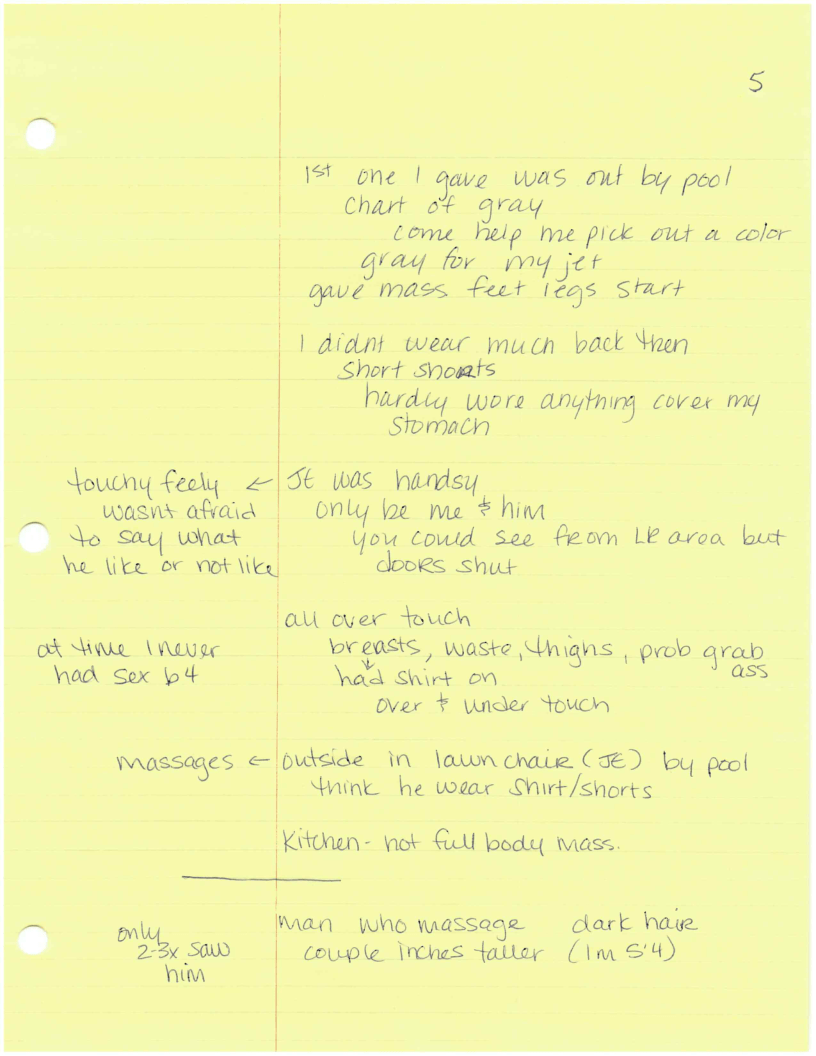 5
1st one I gave was out by pool
chart of gray
come help me pick out a color
gray for my jet
gave mass feet legs start
I didnt wear much back then
short shorts
hardly wore anything cover my
stomach
touchy feely ← JE was handsy
wasnt afraid only be me & him
to say what you could see from LR area but
he like or not like doors shut
all over touch
at time I never breasts, waste, thighs, prob grab
ass
had sex b4 had shirt on
over & under touch
massages ← outside in lawn chair (JE) by pool
think he wear shirt/shorts
Kitchen - not full body mass.
only man who massage dark hair
2-3x saw couple inches taller (Im 5'4)
him